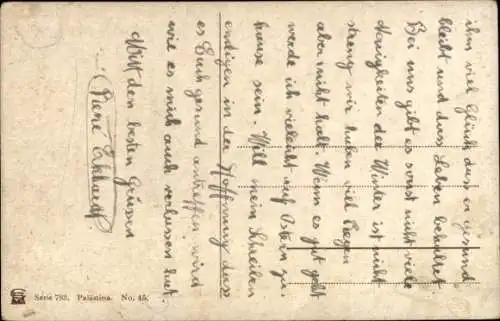 ihm viel Glück dass er gesund
bleibt und dass Leben behaltet.
Bei uns gibt es sonst nicht viele
Neuigkeiten der Winter ist nicht
streng wir haben viel Regen
aber nicht kalt. Wenn es gut geht
werde ich vieleicht auf Ostern zu
hause sein. Will mein Schreiben
endigen in der Hoffnung dass
es Euch gesund antreffen wird
wie es mich auch verlassen tut.
Mit den besten Grüssen
Eckhardt
Serie 793. Palästina. No. 45.